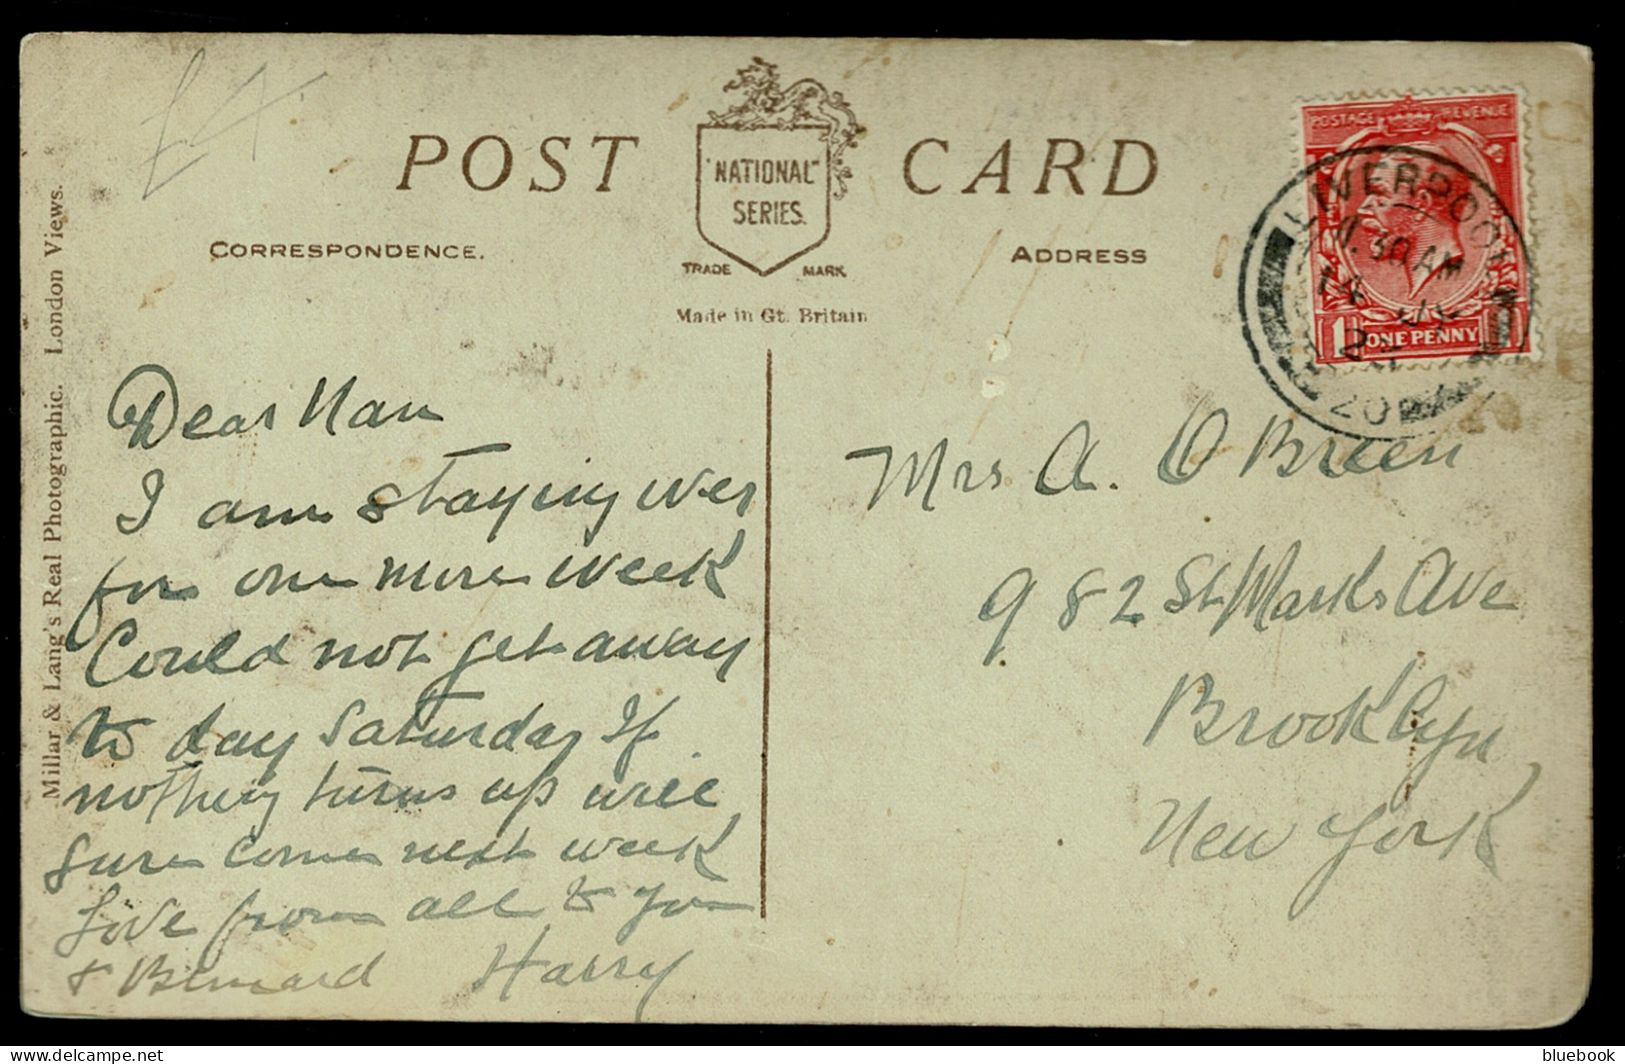 £4
POST CARD
"NATIONAL"
SERIES.
TRADE MARK
CORRESPONDENCE.
ADDRESS
Made in Gt. Britain
Millar & Lang's Real Photographic. London Views.
POSTAGE REVENUE
ONE PENNY
LIVERPOOL
11.30 AM
Dear Nan
I am staying over
for one more week
Could not get away
to day Saturday If
nothing turns up will
sure come next week
Love from all to you
& Bernard Harry
Mrs A. O Brien
982 St Marks Ave
Brooklyn
New York
bluebook
delcampe.net